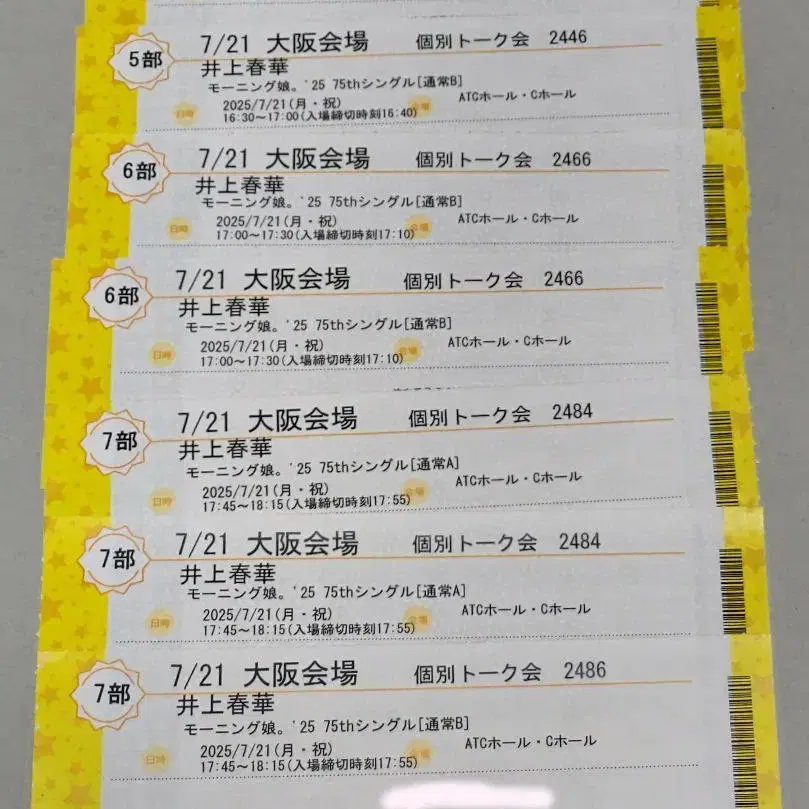 5部
7/21 大阪会場 個別トーク会 2446
井上春華
モーニング娘。'25 75thシングル[通常B]
日時 2025/7/21(月・祝) 会場 ATCホール・Cホール
16:30～17:00(入場締切時刻16:40)
6部
7/21 大阪会場 個別トーク会 2466
井上春華
モーニング娘。'25 75thシングル[通常B]
日時 2025/7/21(月・祝) 会場 ATCホール・Cホール
17:00～17:30(入場締切時刻17:10)
6部
7/21 大阪会場 個別トーク会 2466
井上春華
モーニング娘。'25 75thシングル[通常B]
日時 2025/7/21(月・祝) 会場 ATCホール・Cホール
17:00～17:30(入場締切時刻17:10)
7部
7/21 大阪会場 個別トーク会 2484
井上春華
モーニング娘。'25 75thシングル[通常A]
日時 2025/7/21(月・祝) 会場 ATCホール・Cホール
17:45～18:15(入場締切時刻17:55)
7部
7/21 大阪会場 個別トーク会 2484
井上春華
モーニング娘。'25 75thシングル[通常A]
日時 2025/7/21(月・祝) 会場 ATCホール・Cホール
17:45～18:15(入場締切時刻17:55)
7部
7/21 大阪会場 個別トーク会 2486
井上春華
モーニング娘。'25 75thシングル[通常B]
日時 2025/7/21(月・祝) 会場 ATCホール・Cホール
17:45～18:15(入場締切時刻17:55)